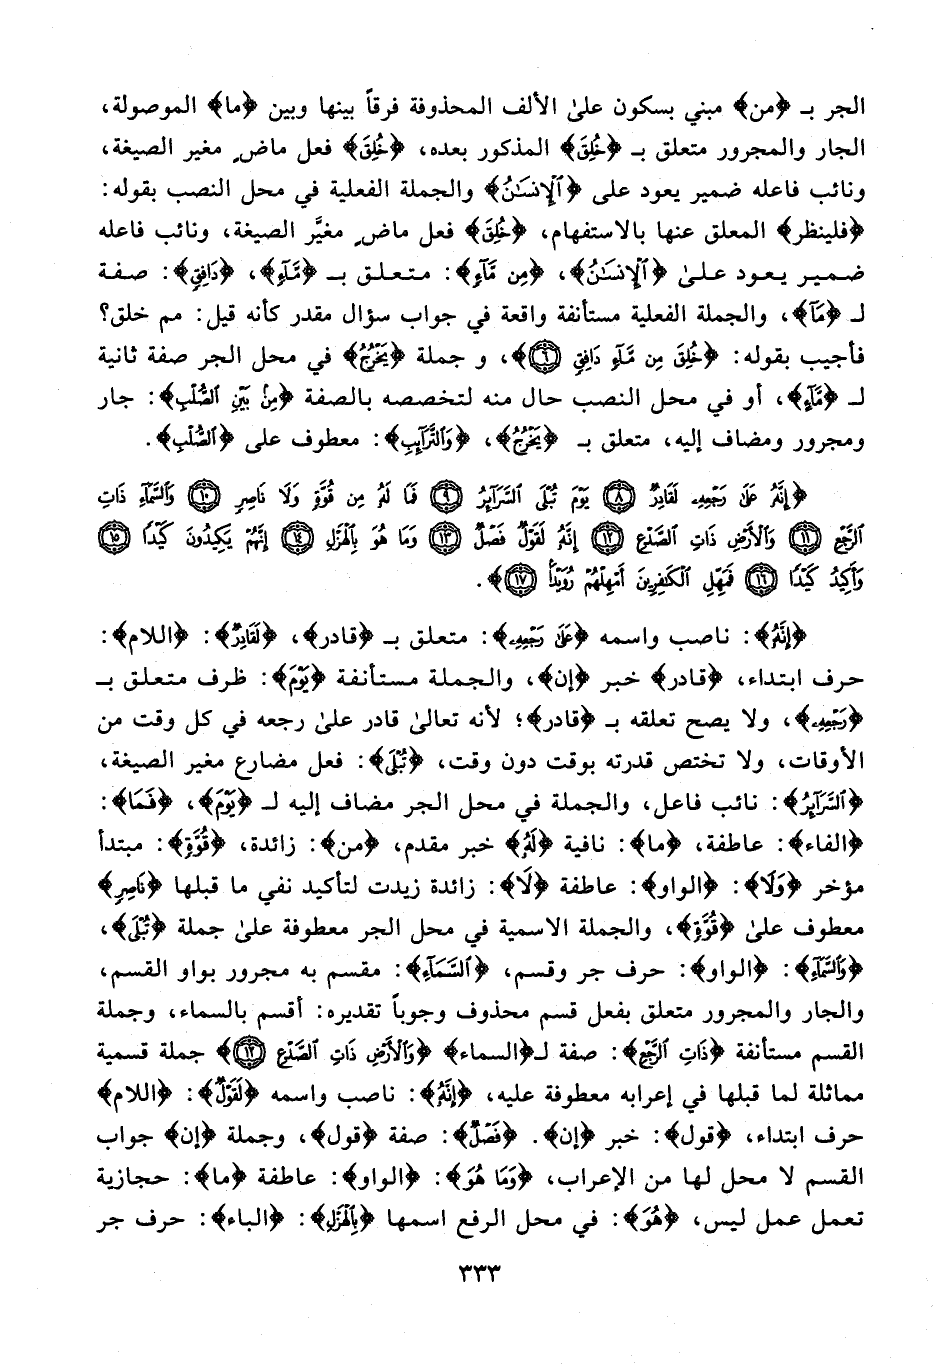 الجر بـ ﴿من﴾ مبني بسكون علىٰ الألف المحذوفة فرقاً بينها وبين ﴿ما﴾ الموصولة،
الجار والمجرور متعلق بـ ﴿خُلِقَ﴾ المذكور بعده، ﴿خُلِقَ﴾ فعل ماضٍ مغير الصيغة،
ونائب فاعله ضمير يعود على ﴿ٱلْإِنسَـٰنُ﴾ والجملة الفعلية في محل النصب بقوله:
﴿فلينظر﴾ المعلق عنها بالاستفهام، ﴿خُلِقَ﴾ فعل ماضٍ مغيَّر الصيغة، ونائب فاعله
ضمير يعود علىٰ ﴿ٱلْإِنسَـٰنُ﴾، ﴿مِن مَّآءٍ﴾: متعلق بـ ﴿مَّآءٍ﴾، ﴿دَافِقٍ﴾: صفة
لـ ﴿مَآءٍ﴾، والجملة الفعلية مستأنفة واقعة في جواب سؤال مقدر كأنه قيل: مم خلق؟
فأجيب بقوله: ﴿خُلِقَ مِن مَّآءٍ دَافِقٍ ۝٦﴾، و جملة ﴿يَخْرُجُ﴾ في محل الجر صفة ثانية
لـ ﴿مَّآءٍ﴾، أو في محل النصب حال منه لتخصصه بالصفة ﴿مِنۢ بَيْنِ ٱلصُّلْبِ﴾: جار
ومجرور ومضاف إليه، متعلق بـ ﴿يَخْرُجُ﴾، ﴿وَٱلتَّرَآئِبِ﴾: معطوف على ﴿ٱلصُّلْبِ﴾.
﴿إِنَّهُۥ عَلَىٰ رَجْعِهِۦ لَقَادِرٌ ۝٨ يَوْمَ تُبْلَى ٱلسَّرَآئِرُ ۝٩ فَمَا لَهُۥ مِن قُوَّةٍ وَلَا نَاصِرٍ ۝١٠ وَٱلسَّمَآءِ ذَاتِ
ٱلرَّجْعِ ۝١١ وَٱلْأَرْضِ ذَاتِ ٱلصَّدْعِ ۝١٢ إِنَّهُۥ لَقَوْلٌ فَصْلٌ ۝١٣ وَمَا هُوَ بِٱلْهَزْلِ ۝١٤ إِنَّهُمْ يَكِيدُونَ كَيْدًا ۝١٥
وَأَكِيدُ كَيْدًا ۝١٦ فَمَهِّلِ ٱلْكَـٰفِرِينَ أَمْهِلْهُمْ رُوَيْدًۢا ۝١٧﴾.
﴿إِنَّهُۥ﴾: ناصب واسمه ﴿عَلَىٰ رَجْعِهِۦ﴾: متعلق بـ ﴿قادر﴾، ﴿لَقَادِرٌ﴾: ﴿اللام﴾:
حرف ابتداء، ﴿قادر﴾ خبر ﴿إن﴾، والجملة مستأنفة ﴿يَوْمَ﴾: ظرف متعلق بـ
﴿رَجْعِهِۦ﴾، ولا يصح تعلقه بـ ﴿قادر﴾؛ لأنه تعالىٰ قادر علىٰ رجعه في كل وقت من
الأوقات، ولا تختص قدرته بوقت دون وقت، ﴿تُبْلَى﴾: فعل مضارع مغير الصيغة،
﴿ٱلسَّرَآئِرُ﴾: نائب فاعل، والجملة في محل الجر مضاف إليه لـ ﴿يَوْمَ﴾، ﴿فَمَا﴾:
﴿الفاء﴾: عاطفة، ﴿ما﴾: نافية ﴿لَهُۥ﴾ خبر مقدم، ﴿من﴾: زائدة، ﴿قُوَّةٍ﴾: مبتدأ
مؤخر ﴿وَلَا﴾: ﴿الواو﴾: عاطفة ﴿لَا﴾: زائدة زيدت لتأكيد نفي ما قبلها ﴿نَاصِرٍ﴾
معطوف علىٰ ﴿قُوَّةٍ﴾، والجملة الاسمية في محل الجر معطوفة علىٰ جملة ﴿تُبْلَى﴾،
﴿وَٱلسَّمَآءِ﴾: ﴿الواو﴾: حرف جر وقسم، ﴿ٱلسَّمَآءِ﴾: مقسم به مجرور بواو القسم،
والجار والمجرور متعلق بفعل قسم محذوف وجوباً تقديره: أقسم بالسماء، وجملة
القسم مستأنفة ﴿ذَاتِ ٱلرَّجْعِ﴾: صفة لـ﴿السماء﴾ ﴿وَٱلْأَرْضِ ذَاتِ ٱلصَّدْعِ ۝١٢﴾ جملة قسمية
مماثلة لما قبلها في إعرابه معطوفة عليه، ﴿إِنَّهُۥ﴾: ناصب واسمه ﴿لَقَوْلٌ﴾: ﴿اللام﴾
حرف ابتداء، ﴿قول﴾: خبر ﴿إن﴾. ﴿فَصْلٌ﴾: صفة ﴿قول﴾، وجملة ﴿إن﴾ جواب
القسم لا محل لها من الإعراب، ﴿وَمَا هُوَ﴾: ﴿الواو﴾: عاطفة ﴿ما﴾: حجازية
تعمل عمل ليس، ﴿هُوَ﴾: في محل الرفع اسمها ﴿بِٱلْهَزْلِ﴾: ﴿الباء﴾: حرف جر
٣٣٣